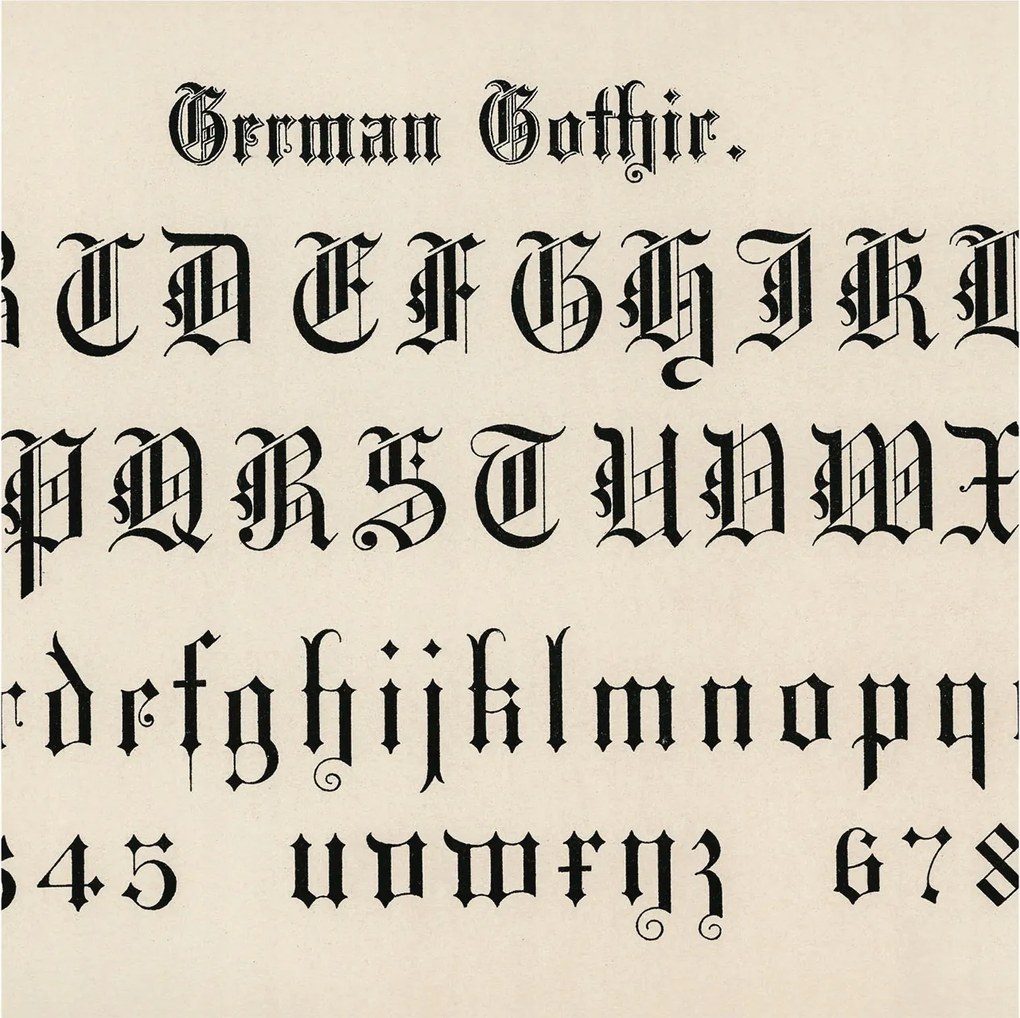 German Gothic.
B C D E F G H I K L
P Q R S T U V W X
c d e f g h i j k l m n o p q
3 4 5 u v w x y z 6 7 8